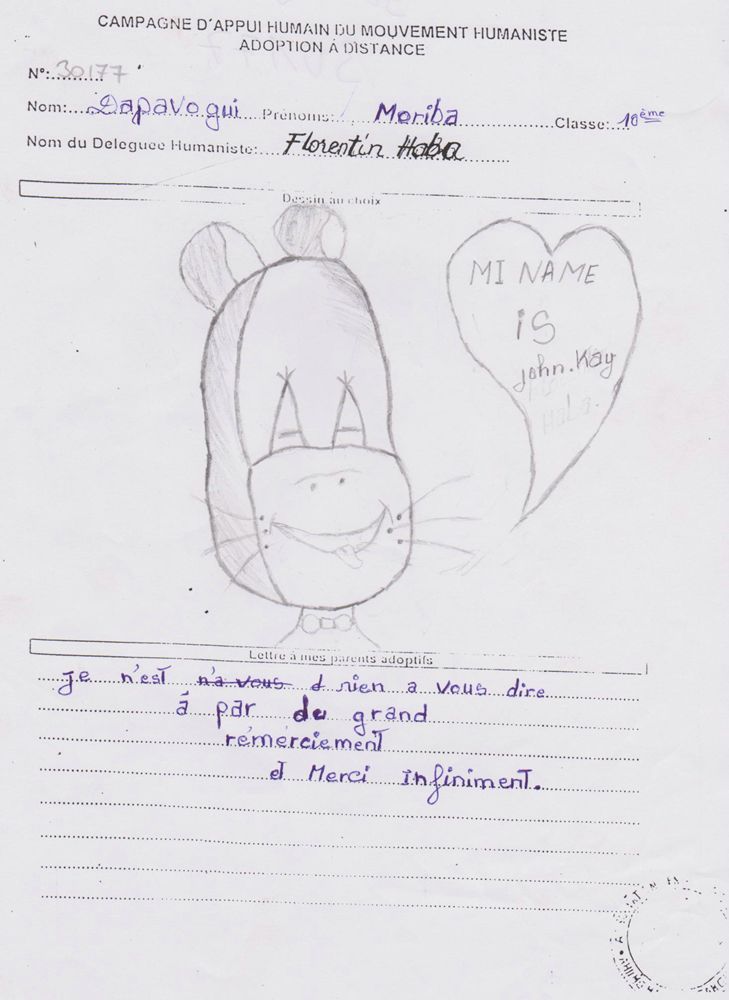 CAMPAGNE D'APPUI HUMAIN DU MOUVEMENT HUMANISTE
ADOPTION À DISTANCE
N°:..........30177
Nom:....Dapavogui Prénoms:. Moriba ..............Classe:..10ème
Nom du Deleguée Humaniste:....Florentin Haba
Dessin au choix
MI NAME
iS
john.Kay
HaLa.
Lettre à mes parents adoptifs
je n'est n'a vous d rien a vous dire
à par de grand
rémérciement
et Merci infiniment.